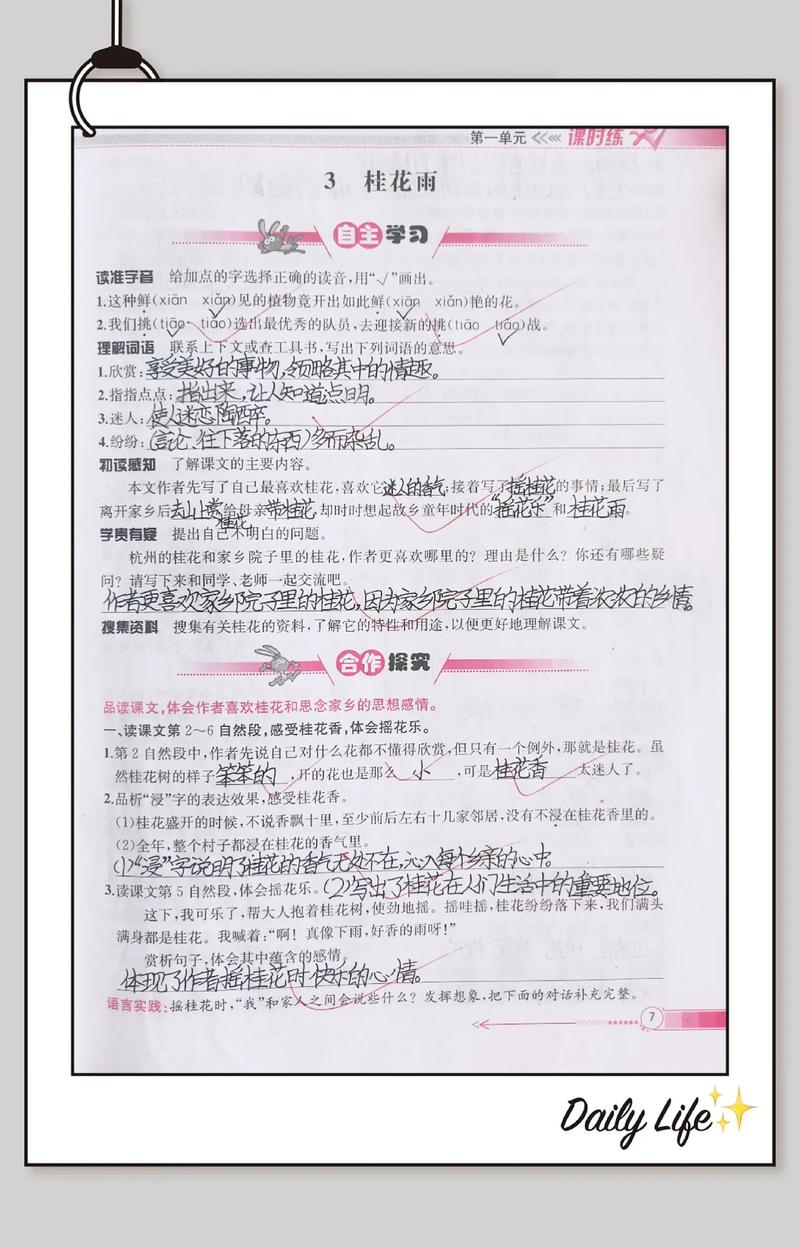 第一单元 课时练
3 桂花雨
自主学习
读准字音 给加点的字选择正确的读音,用“√”画出。
1.这种鲜(xiān xiǎn√)见的植物竟开出如此鲜(xiān√ xiǎn)艳的花。
2.我们挑(tiāo√ tiǎo)选出最优秀的队员,去迎接新的挑(tiāo tiǎo√)战。
理解词语 联系上下文或查工具书,写出下列词语的意思。
1.欣赏:享受美好的事物,领略其中的情趣。
2.指指点点:指出来,让人知道点明。
3.迷人:使人迷恋,陶醉。
4.纷纷:(言论、往下落的东西)多而杂乱。
初读感知 了解课文的主要内容。
本文作者先写了自己最喜欢桂花,喜欢它迷人的香气;接着写了摇桂花的事情;最后写了
离开家乡后去山上赏桂花给母亲带桂花,却时时想起故乡童年时代的“摇花乐”和桂花雨。
学贵有疑 提出自己不明白的问题。
杭州的桂花和家乡院子里的桂花,作者更喜欢哪里的?理由是什么?你还有哪些疑
问?请写下来和同学、老师一起交流吧。
作者更喜欢家乡院子里的桂花,因为家乡院子里的桂花带着浓浓的乡情。
搜集资料 搜集有关桂花的资料,了解它的特性和用途,以便更好地理解课文。
合作探究
品读课文,体会作者喜欢桂花和思念家乡的思想感情。
一、读课文第2~6自然段,感受桂花香,体会摇花乐。
1.第2自然段中,作者先说自己对什么花都不懂得欣赏,但只有一个例外,那就是桂花。虽
然桂花树的样子笨笨的,开的花也是那么小,可是桂花香太迷人了。
2.品析“浸”字的表达效果,感受桂花香。
(1)桂花盛开的时候,不说香飘十里,至少前后左右十几家邻居,没有不浸在桂花香里的。
(2)全年,整个村子都浸在桂花的香气里。
(1)“浸”字说明了桂花的香气无处不在,沁入每个乡亲的心中。
3.读课文第5自然段,体会摇花乐。(2)写出了桂花在人们生活中的重要地位。
这下,我可乐了,帮大人抱着桂花树,使劲地摇。摇哇摇,桂花纷纷落下来,我们满头
满身都是桂花。我喊着:“啊!真像下雨,好香的雨呀!”
赏析句子,体会其中蕴含的感情。
体现了作者摇桂花时快乐的心情。
语言实践:摇桂花时,“我”和家人之间会说些什么?发挥想象,把下面的对话补充完整。
7
Daily Life